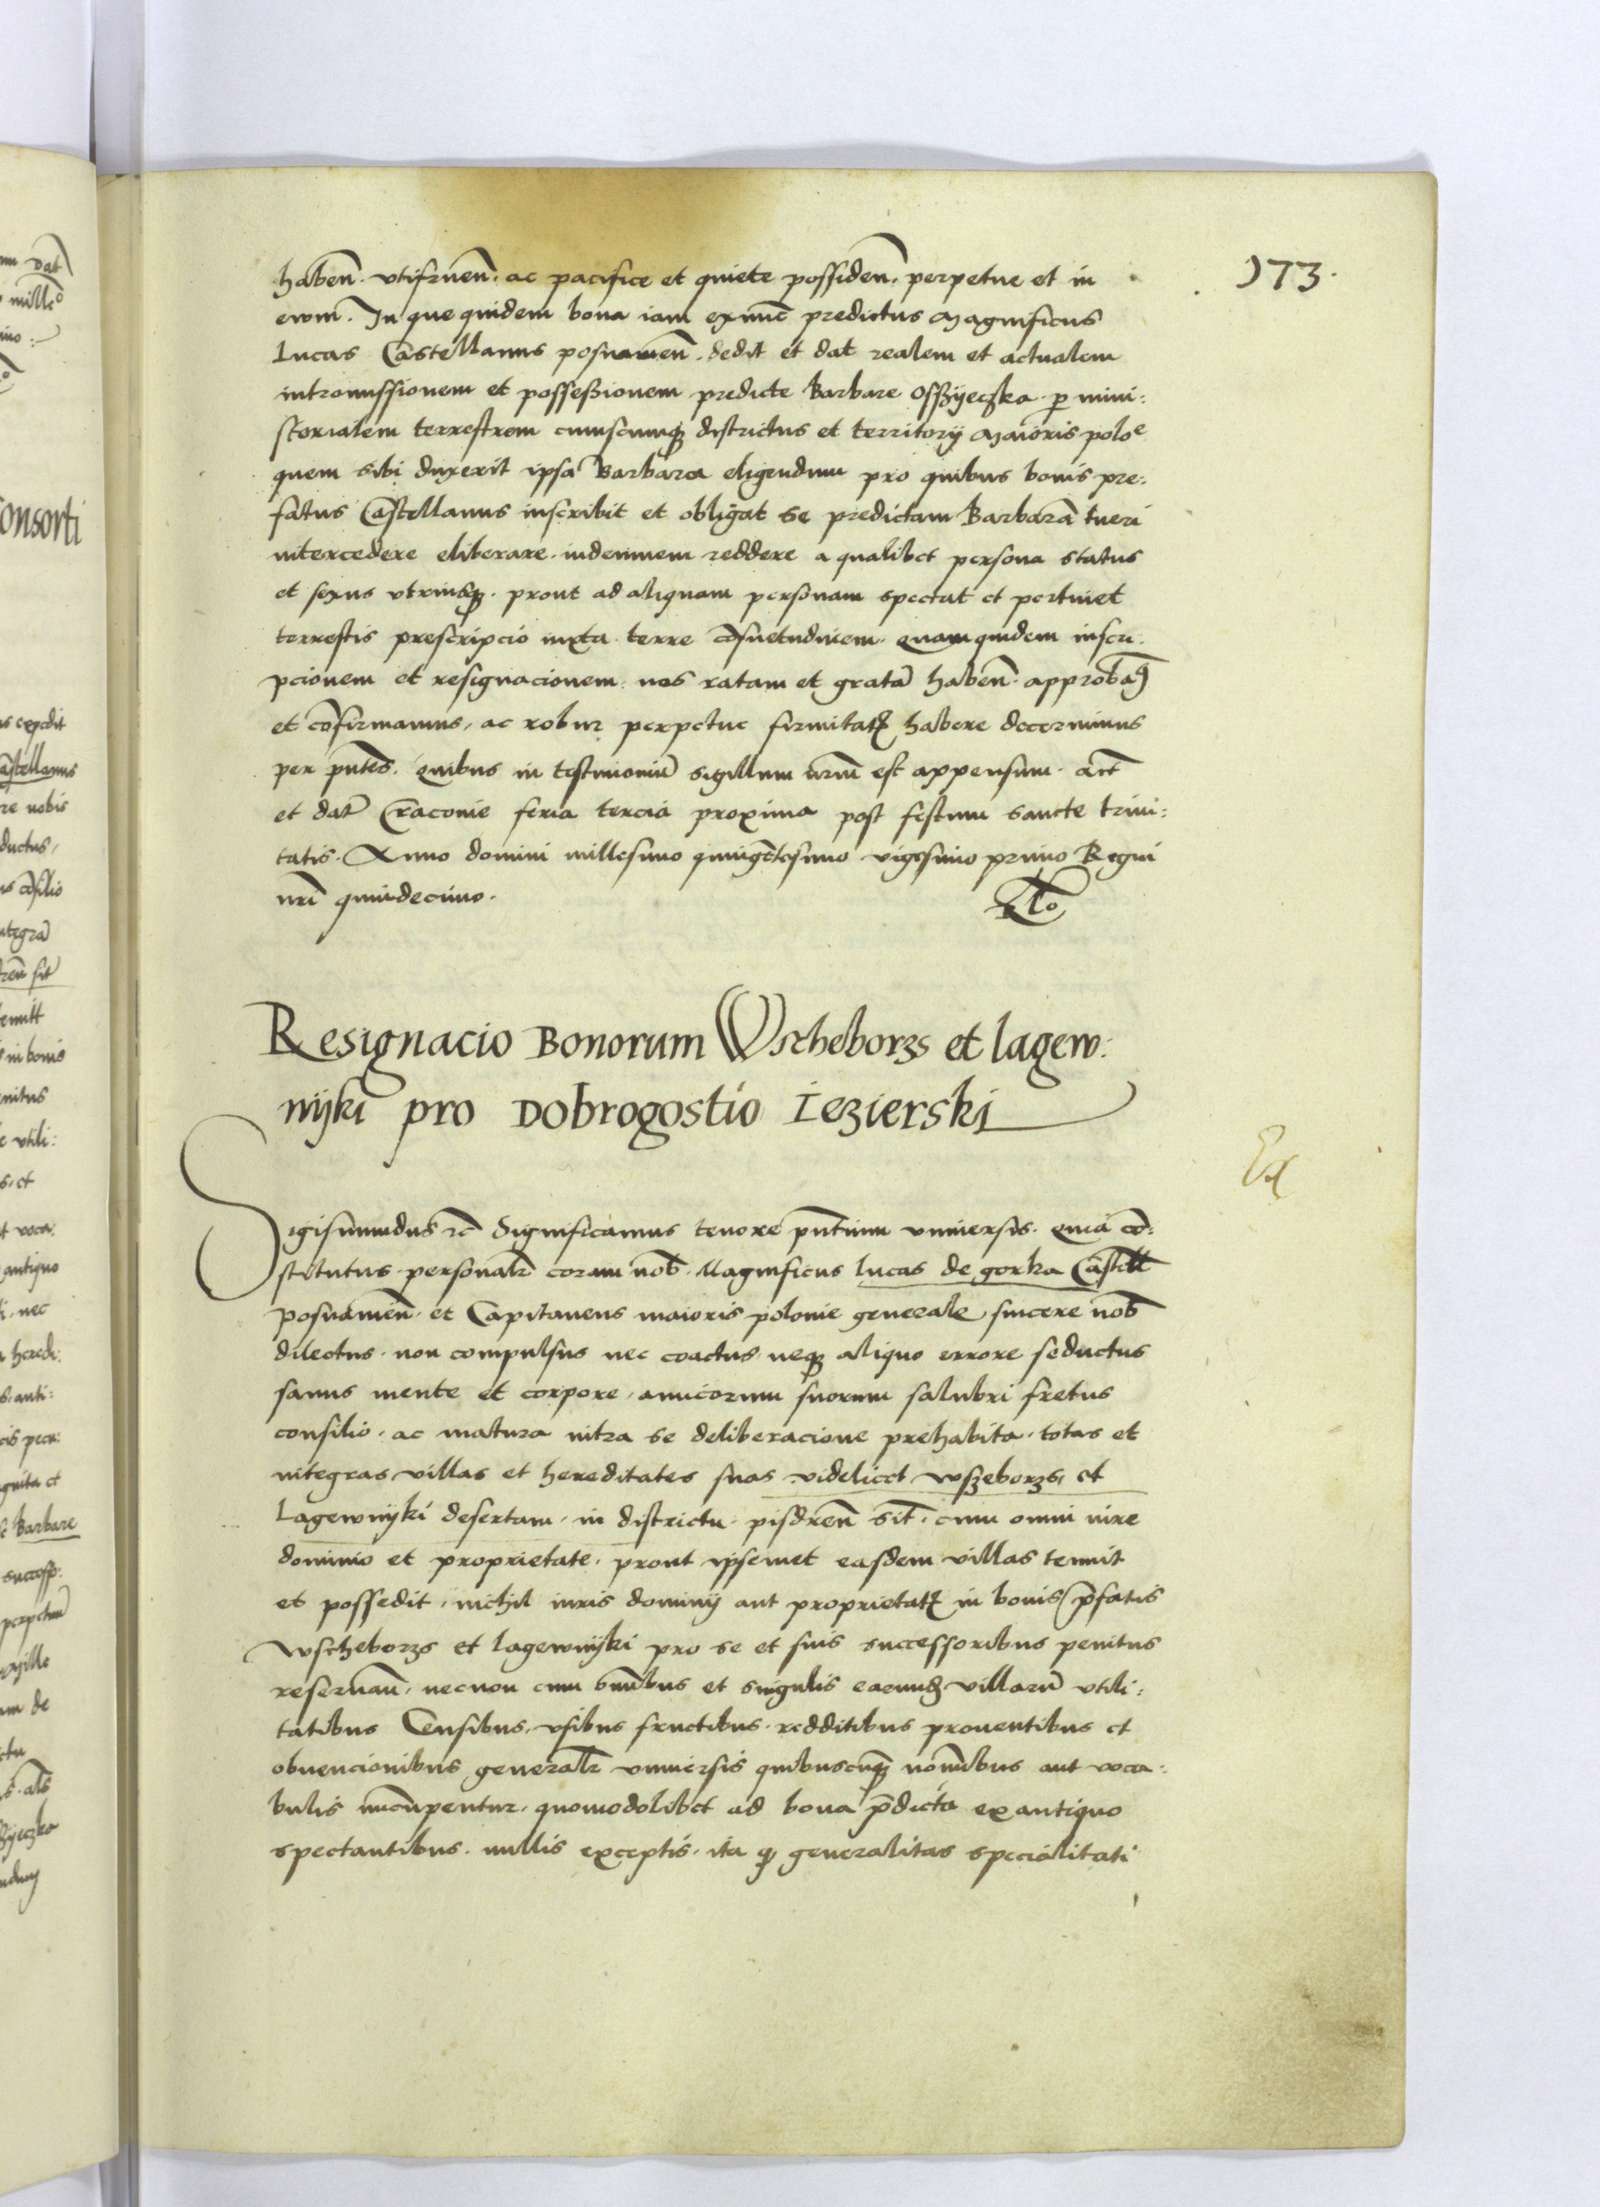 173.
habeñ. vtifrueñ. ac pacifice et quiete possideñ. perpetue et in
ewm̃. In que quidem bona iam exnunc predictus Magnificus
Lucas Castellanus posnanieñ. dedit et dat realem et actualem
intromissionem et possessionem predicte Barbare Osszyeczka per mini:
sterialem terrestrem cuiuscumq districtus et territorij Maioris poloe
quem sibi duxerit ipsa Barbara eligendum pro quibus bonis pre:
fatus Castellanus inscribit et obligat se predictam Barbarã tueri
intercedere eliberare. indemnem reddere a qualibet persona status
et sexus vtriusq. prout ad aliquam personam spectat et pertinet
terrestis prescripcio iuxta terre cõsuetudinem. quam quidem inscri:
pcionem et resignacionem. nos ratam et gratã habeñ. approbam9
et cõfirmamus, ac robur perpetue firmitatz habere decernimus
per pñtes. Quibus in testimoniũ sigillum nrm̃ est appensum. Act̃
et dat̃ Cracouie feria tercia proxima post festum sancte trini:
tatis. Anno domini millesimo quingẽtesimo vigesimo primo Regni
nrĩ quindecimo.
Resignacio Bonorum Wscheborzs et lagew:
nyki pro Dobrogostio Iezierski
Sigismundus zc̃ Significamus tenore pñtium vniuersis. quia cõ:
stitutus personalr̃ coram nob̃. Magnificus Lucas de gorka Castell̃
posnanieñ. et Capitaneus maioris polonie generalẽ sincere nob̃
dilectus. non compulsus nec coactus. neq aliquo errore seductus
sanus mente et corpore, amicorum suorum salubri fretus
consilio. ac matura intra se deliberacione prehabita. totas et
integras villas et hereditates suas videlicet wszeborzs, et
Lagewnyki desertam. in districtu pisdreñ sit̃. cum omni iure
dominio et proprietate, prout ipsemet easdem villas tenuit
et possedit, nichil iuris dominij aut proprietatz in bonis p̃fatis
wscheborzs et lagewnyki pro se et suis successoribus penitus
reseruañ, necnon cum omĩbus et singulis earundz villarũ vtili:
tatibus Censibus, vsibus fructibus. redditibus prouentibus et
obuencionibus generalr̃ vniuersis quibuscũq nomĩbus aut voca:
bulis nuncupentur. quomodolibet ad bona p̃dicta ex antiquo
spectantibus. nullis exceptis. ita q generalitas specialitati